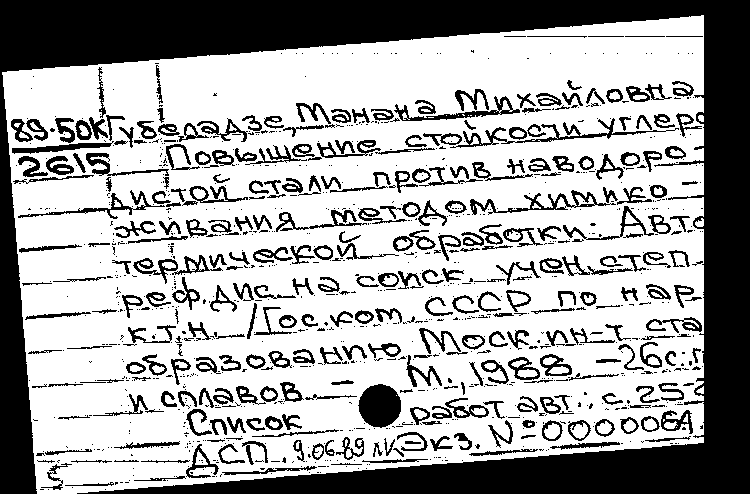 89-50К Губеладзе, Манана Михайловна
2615 Повышение стойкости углеро
дистой стали против наводоро-
живания методом химико-
термической обработки: Авто
реф. дис. на соиск. учен. степ
к.т.н. /Гос. ком. СССР по нар
образованию, Моск. ин-т ста
и сплавов. - М., 1988. - 26с.:
Список работ авт.: с. 25-2
ДСП. 9.06.89 Экз. №000006А